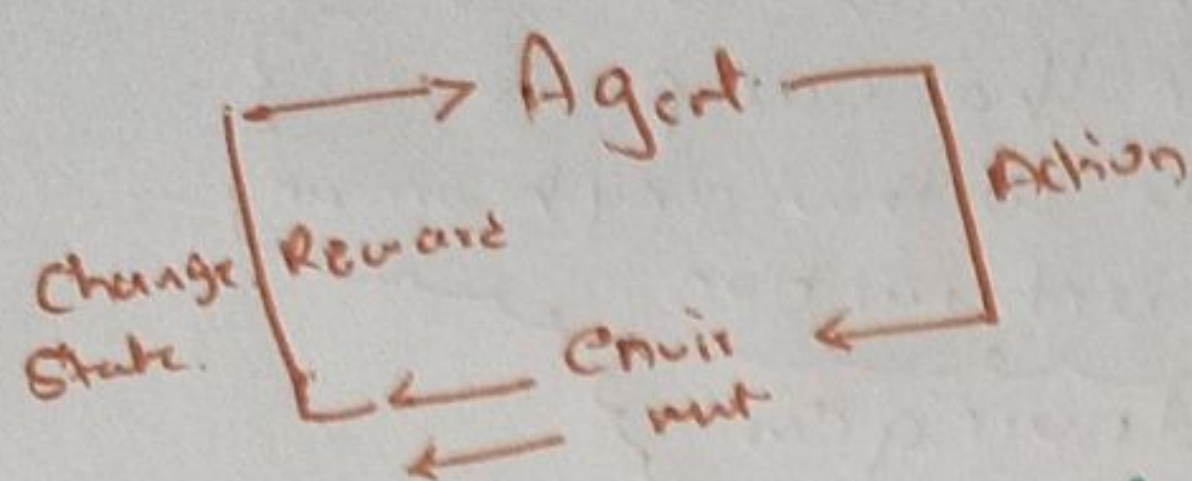 Agent
Action
Change
State.
Reward
Envir
ment